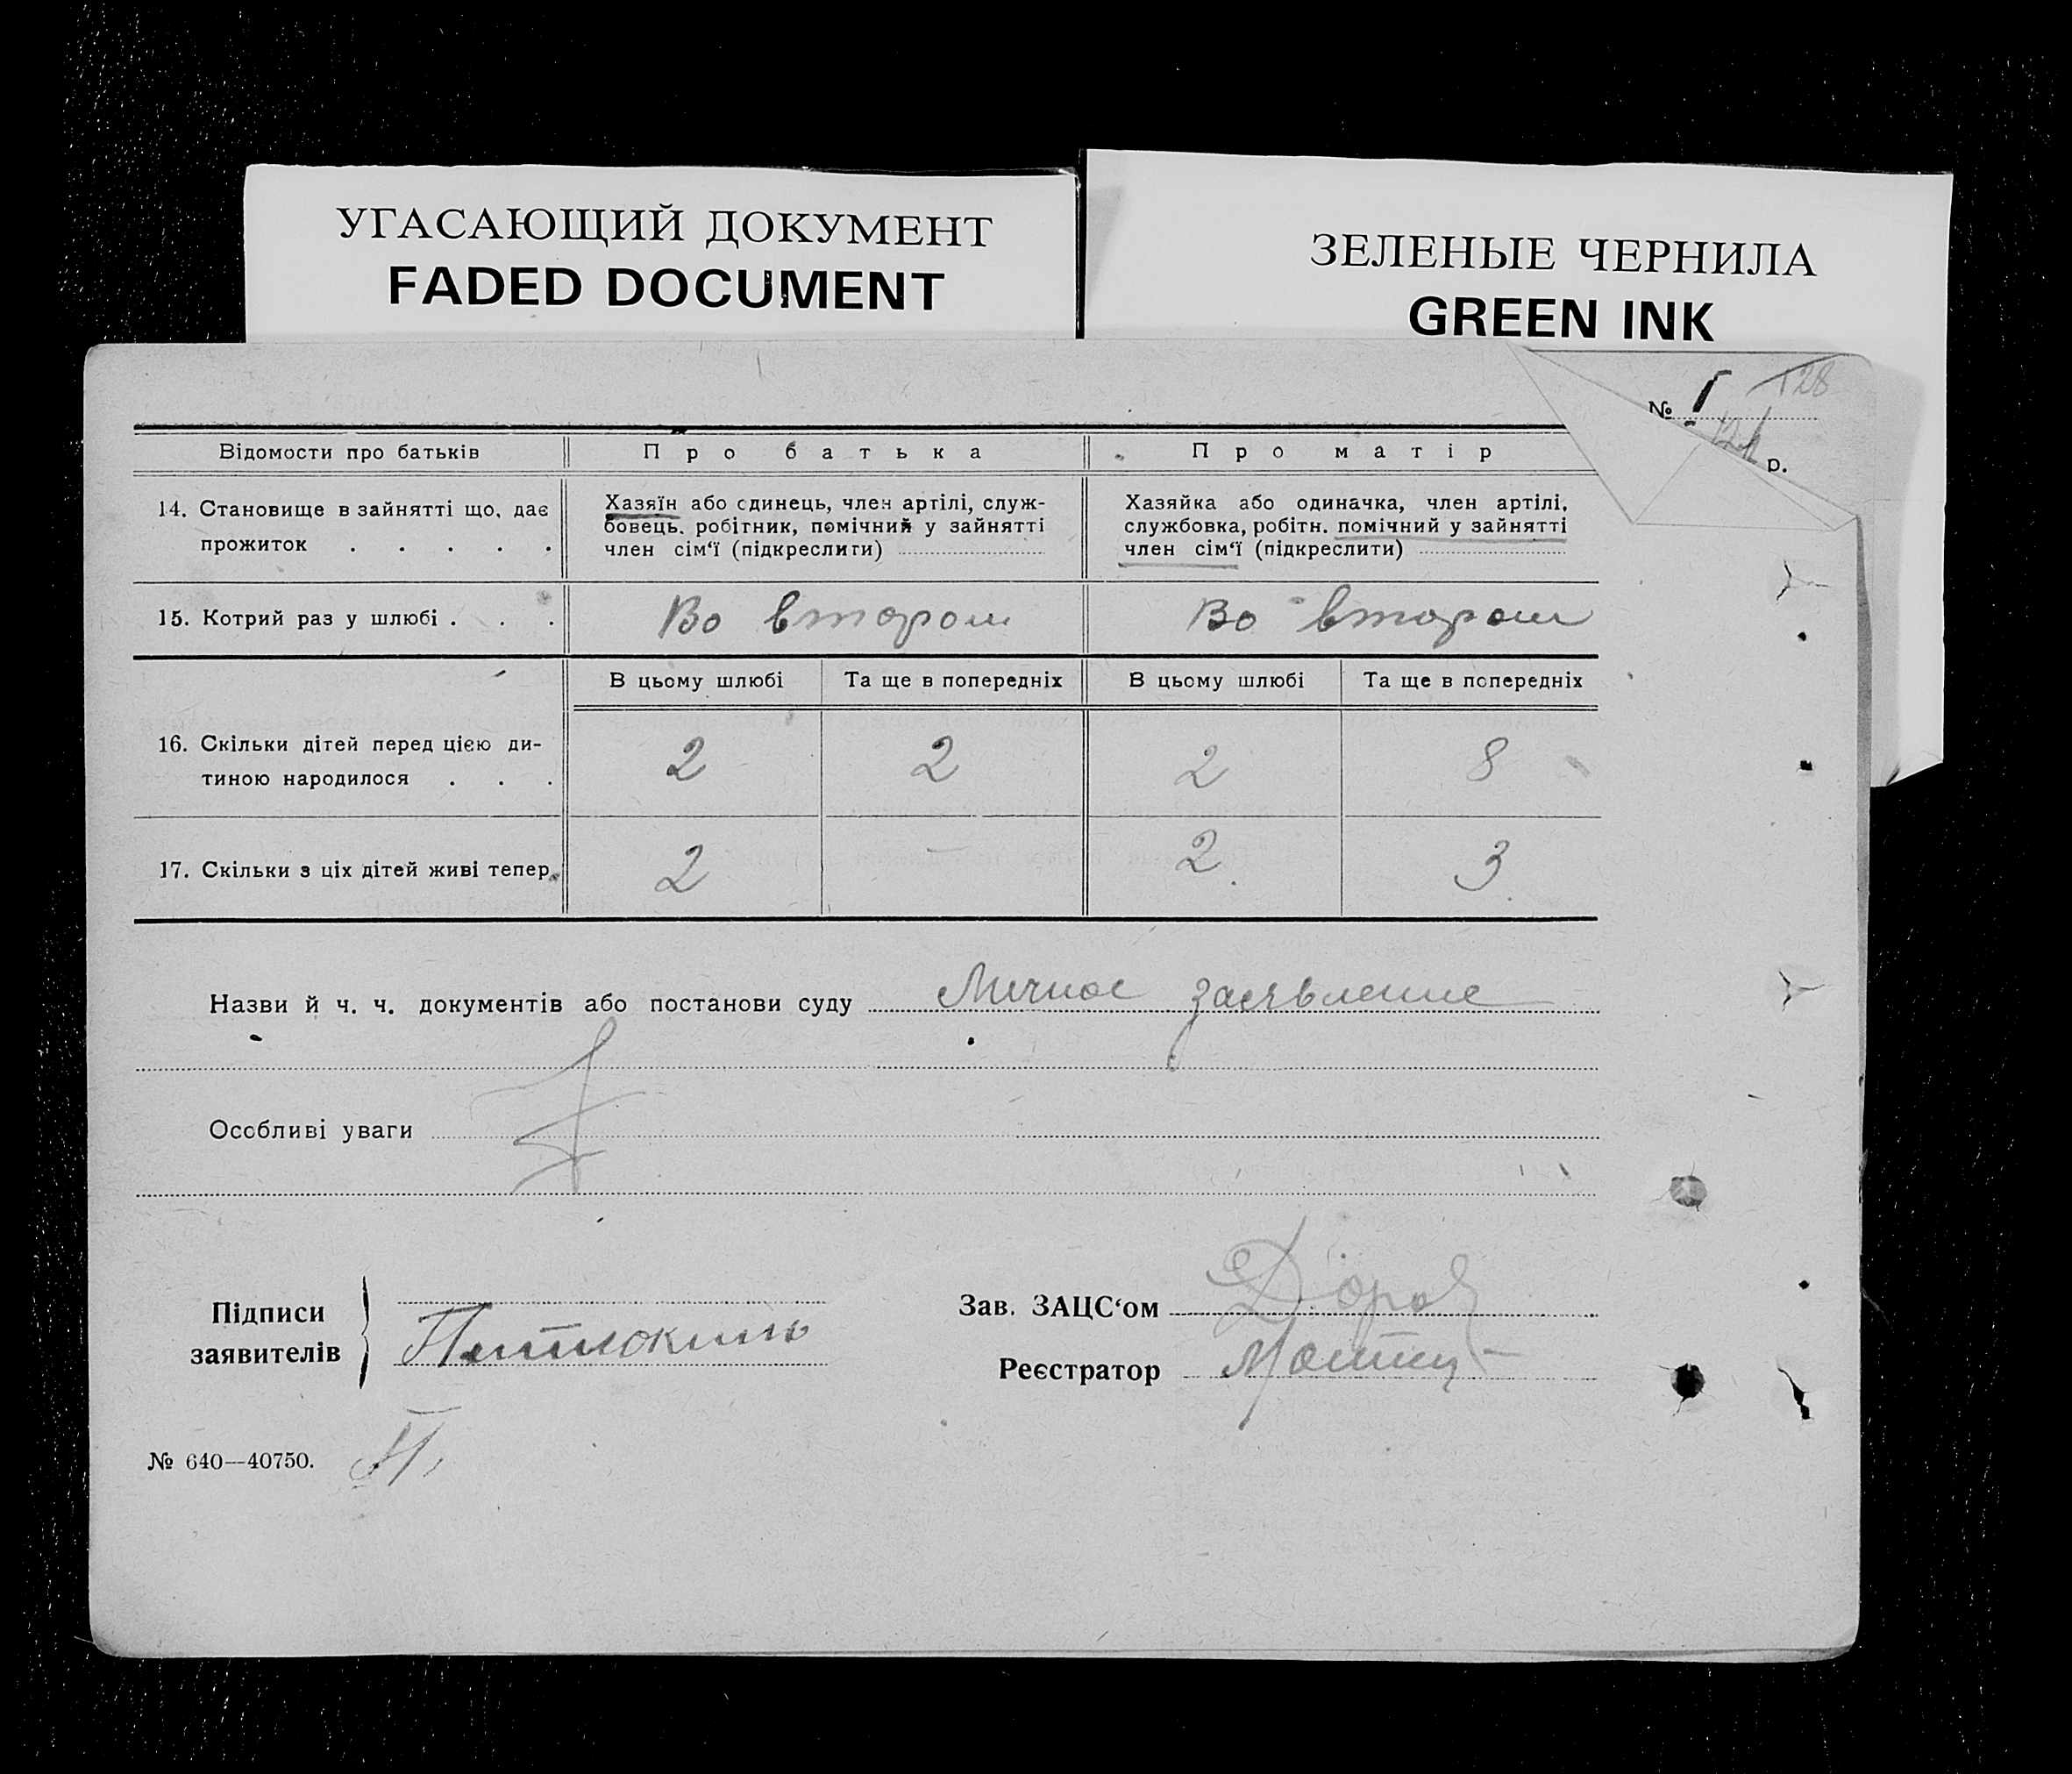 УГАСАЮЩИЙ ДОКУМЕНТ
FADED DOCUMENT
ЗЕЛЕНЫЕ ЧЕРНИЛА
GREEN INK
№ 1 128
р.
Відомости про батьків
Про батька
Про матір
14. Становище в зайнятті що, дає
прожиток . . . . .
Хазяїн або єдинець, член артілі, служ-
бовець, робітник, помічний у зайнятті
член сім‘ї (підкреслити)
Хазяйка або одиначка, член артілі,
службовка, робітн. помічний у зайнятті
член сім‘ї (підкреслити)
15. Котрий раз у шлюбі . . .
Во втором
Во втором
В цьому шлюбі
Та ще в попередніх
В цьому шлюбі
Та ще в попередніх
16. Скільки дітей перед цією ди-
тиною народилося . . .
2
2
2
8
17. Скільки з ціх дітей живі тепер.
2
—
2.
3
Назви й ч. ч. документів або постанови суду Личное заявление
Особливі уваги
Підписи
заявителів
Зав. ЗАЦС‘ом
Реєстратор
№ 640—40750.